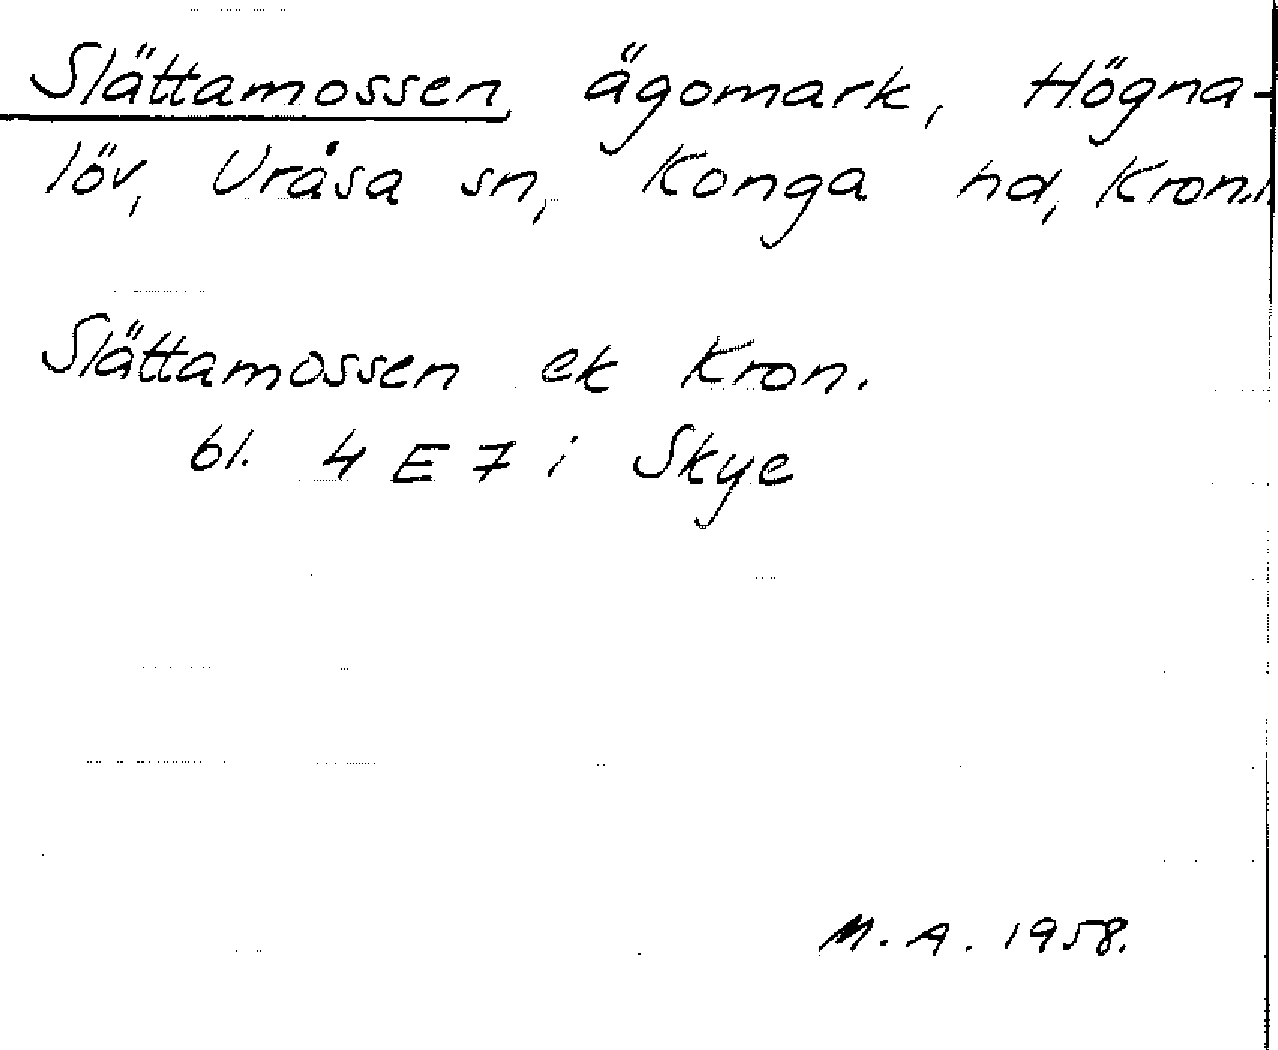 Slättamossen, ägomark, Högna-
löv, Uråsa sn, Konga hd, Kron.l.
Slättamossen ek Kron.
bl. 4 E 7 i Skye
M. A. 1958.